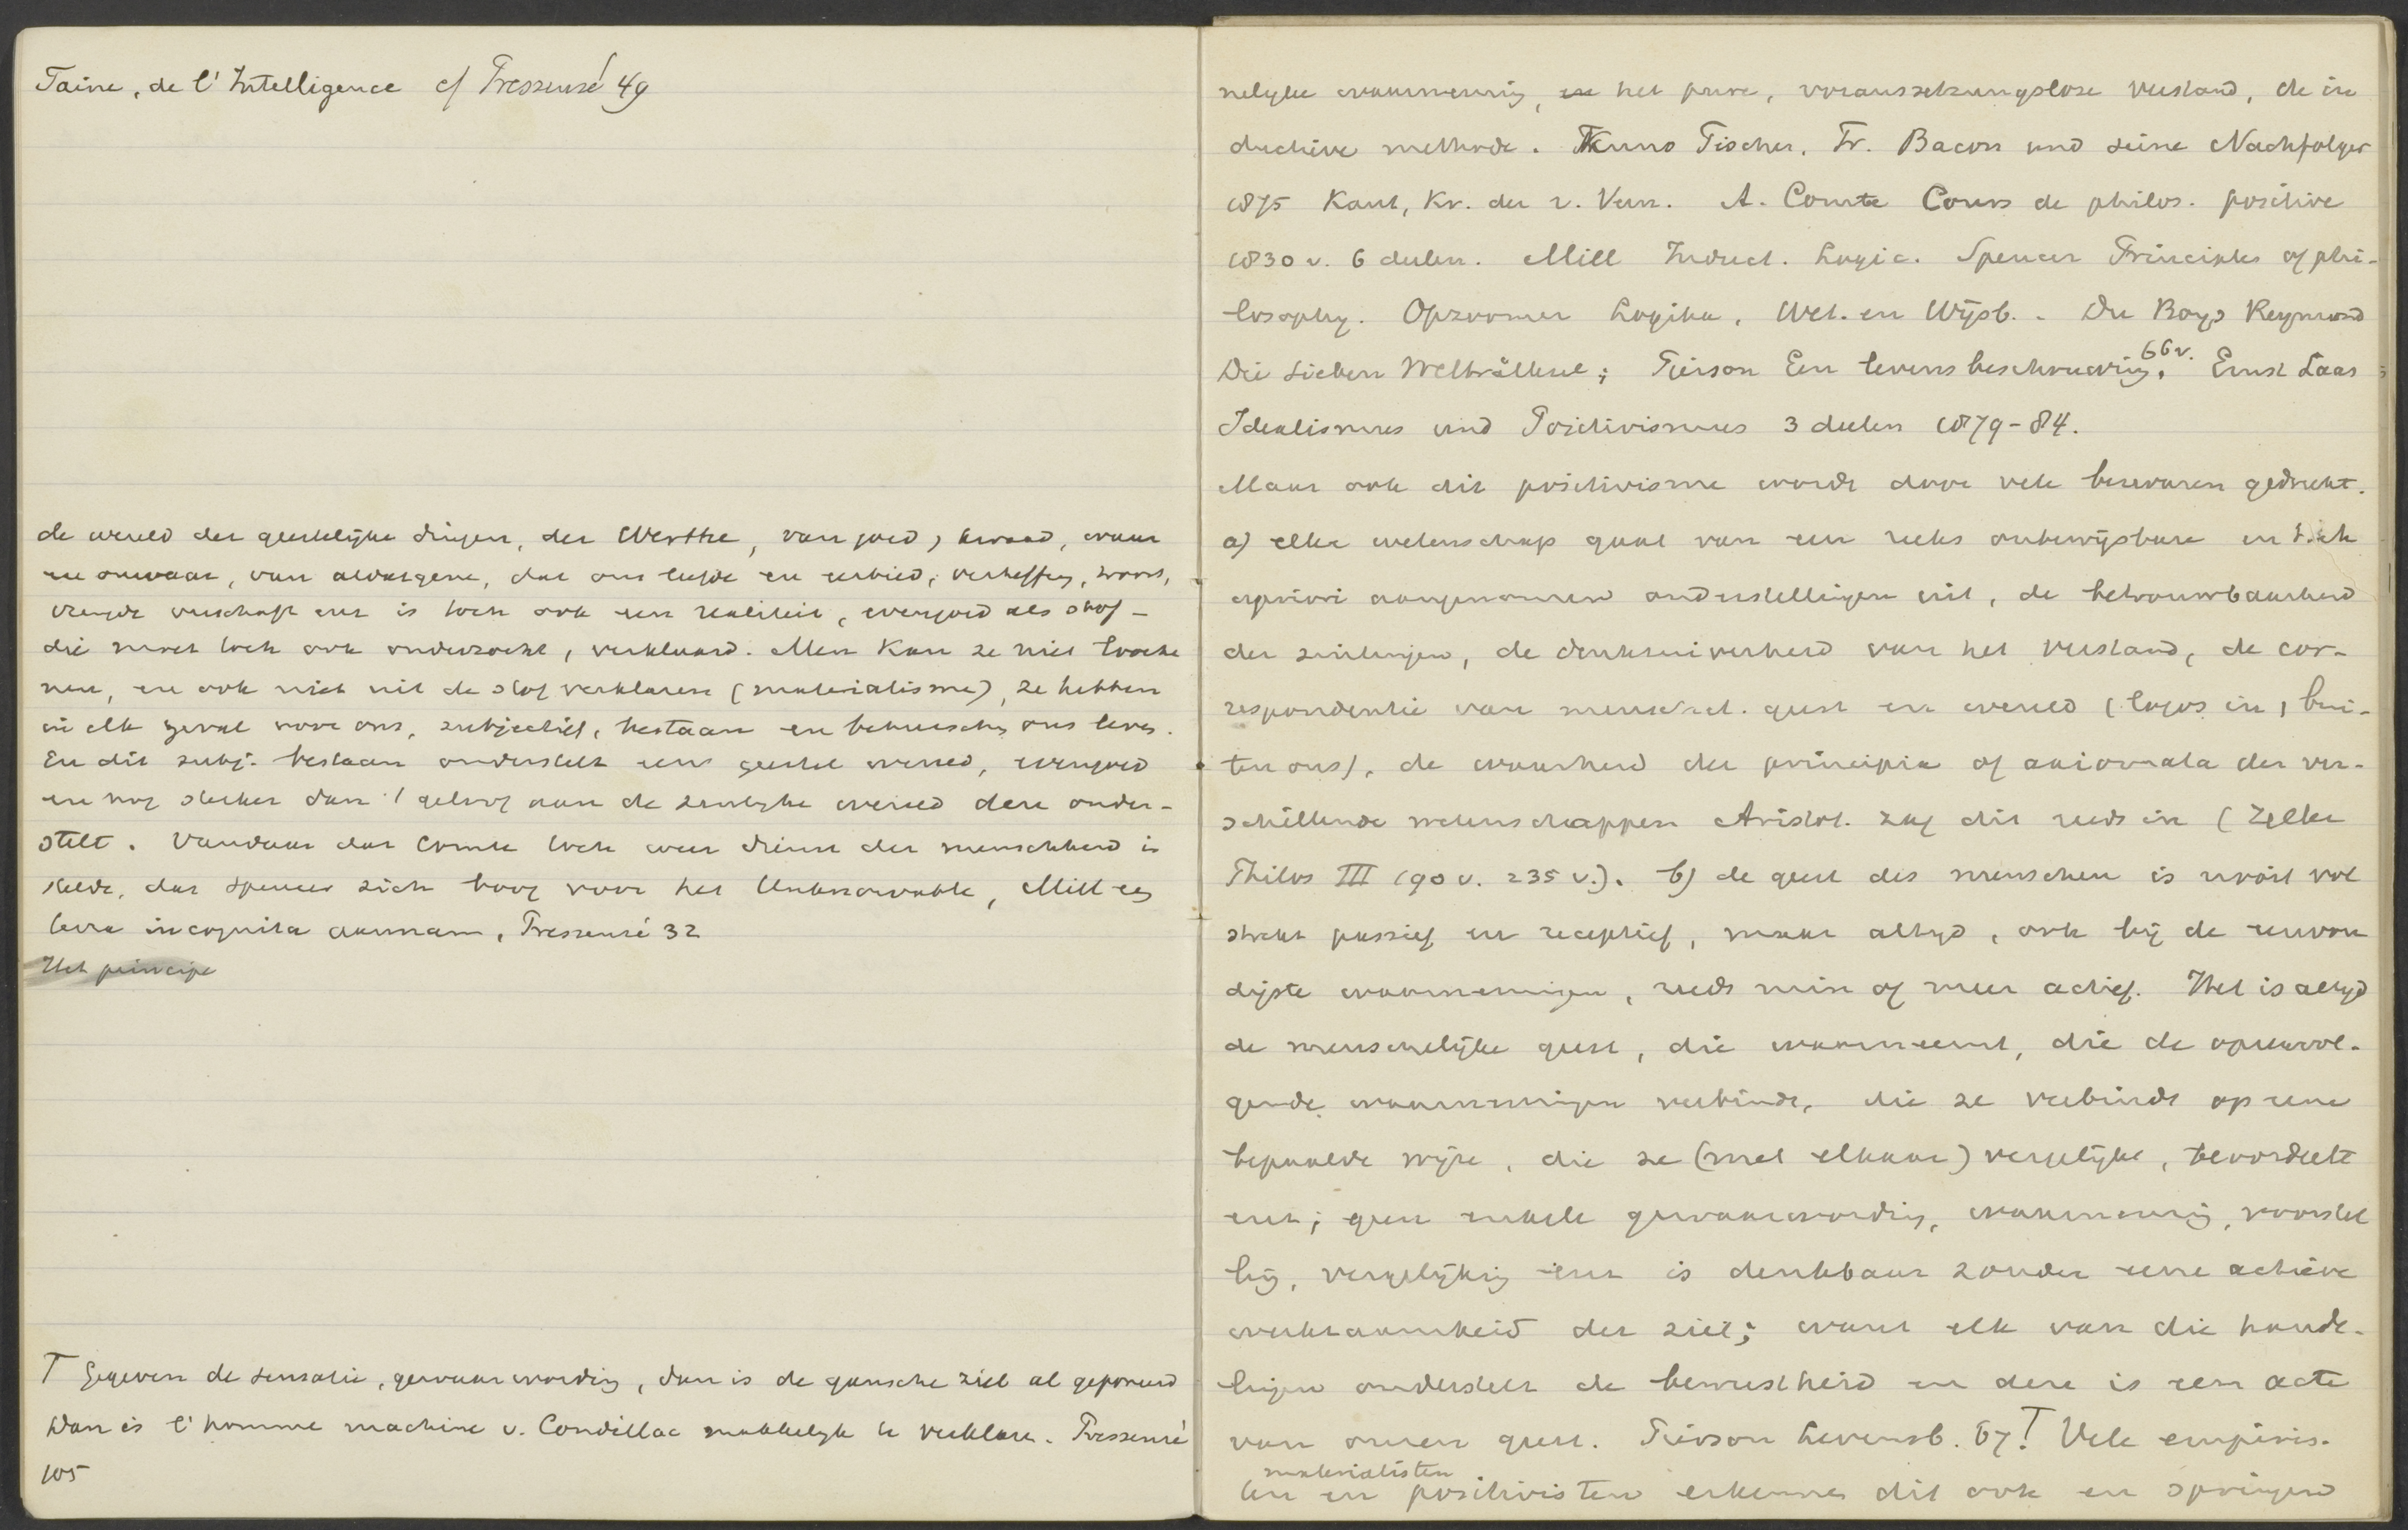 Taine, de l'Intelligence cf Pressensé 49
de wereld der geestelijke dingen, der Werthe, van goed, kwaad, waar
en onwaar, van al datgene, dat ons liefde en eerbied, verheffing, troost,
vreugde verschaft enz is toch ook een realiteit, evengoed als stof -
die moet toch ook onderzocht, verklaard. Men kan ze niet looche
nen, en ook niet uit de stof verklaren (materialisme), ze hebben
in elk geval voor ons, subjectief, bestaan en beheerschen ons leven.
En dit subj. bestaan onderstelt eene geestel wereld, evengoed
en nog sterker dan 't geloof aan de zinlijke wereld deze onder-
stelt. Vandaar dat Comte toch weer dienst der menschheid in
stelde, dat Spencer zich boog voor het Unknowable, Mill een
terra incognita aannam, Pressensé 32
Het principe
T Gegeven de sensatie, gewaarwording, dan is de gansche ziel al geponeerd
Dan is l'homme machine v. Condillac makkelijk te verklaren. Pressensé
105
nelijke waarneming, en het pure, voraussetzungslose verstand, de in
ductieve methode. Kuno Fischer, Fr. Bacon und seine Nachfolger
1875 Kant, Kr. der r. Vern. A. Comte Cours de philos. positive
1830 v. 6 deelen. Mill Induct. Logic. Spencer Principles of phi-
losophy. Opzoomer Logika, Wet. en Wijsb. - Du Boys Reymond
Die sieben Welträthsel; Pierson Een levensbeschouwing 66 v. Ernst Laas
Idealismus und Positivismus 3 deelen 1879-84.
Maar ook dit positivisme wordt door vele bezwaren gedrukt.
a) elke wetenschap gaat van een reeks onbewijsbare en
apriori aangenomen onderstellingen uit, de betrouwbaarheid
der zintuigen, de denkzuiverheid van het verstand, de cor-
respondentie van menschel. geest en wereld (logos in, bui-
ten ons), de waarheid der principia of axiomata der ver-
schillende wetenschappen Aristot. zag dit reeds in (Zeller
Philos III 190 v. 235 v.). b) de geest des menschen is nooit vol
strekt passief en receptief, maar altijd, ook bij de eenvou
digste waarnemingen, reeds min of meer actief. Het is altijd
de menschelijke geest, die waarneemt, die de opeenvol-
gende waarnemingen verbindt, die ze verbindt op eene
bepaalde wijze, die ze (met elkaar) vergelijkt, beoordeelt
enz; geen enkele gewaarwording, waarneming, voorstel
ling, vergelijking enz is denkbaar zonder eene actieve
werkzaamheid der ziel; want elk van die hande-
lingen onderstelt de bewustheid en deze is een acte
van onzen geest. Pierson Levensb. 67. T Vele empiris-
materialisten
ten en positivisten erkennen dit ook en springen